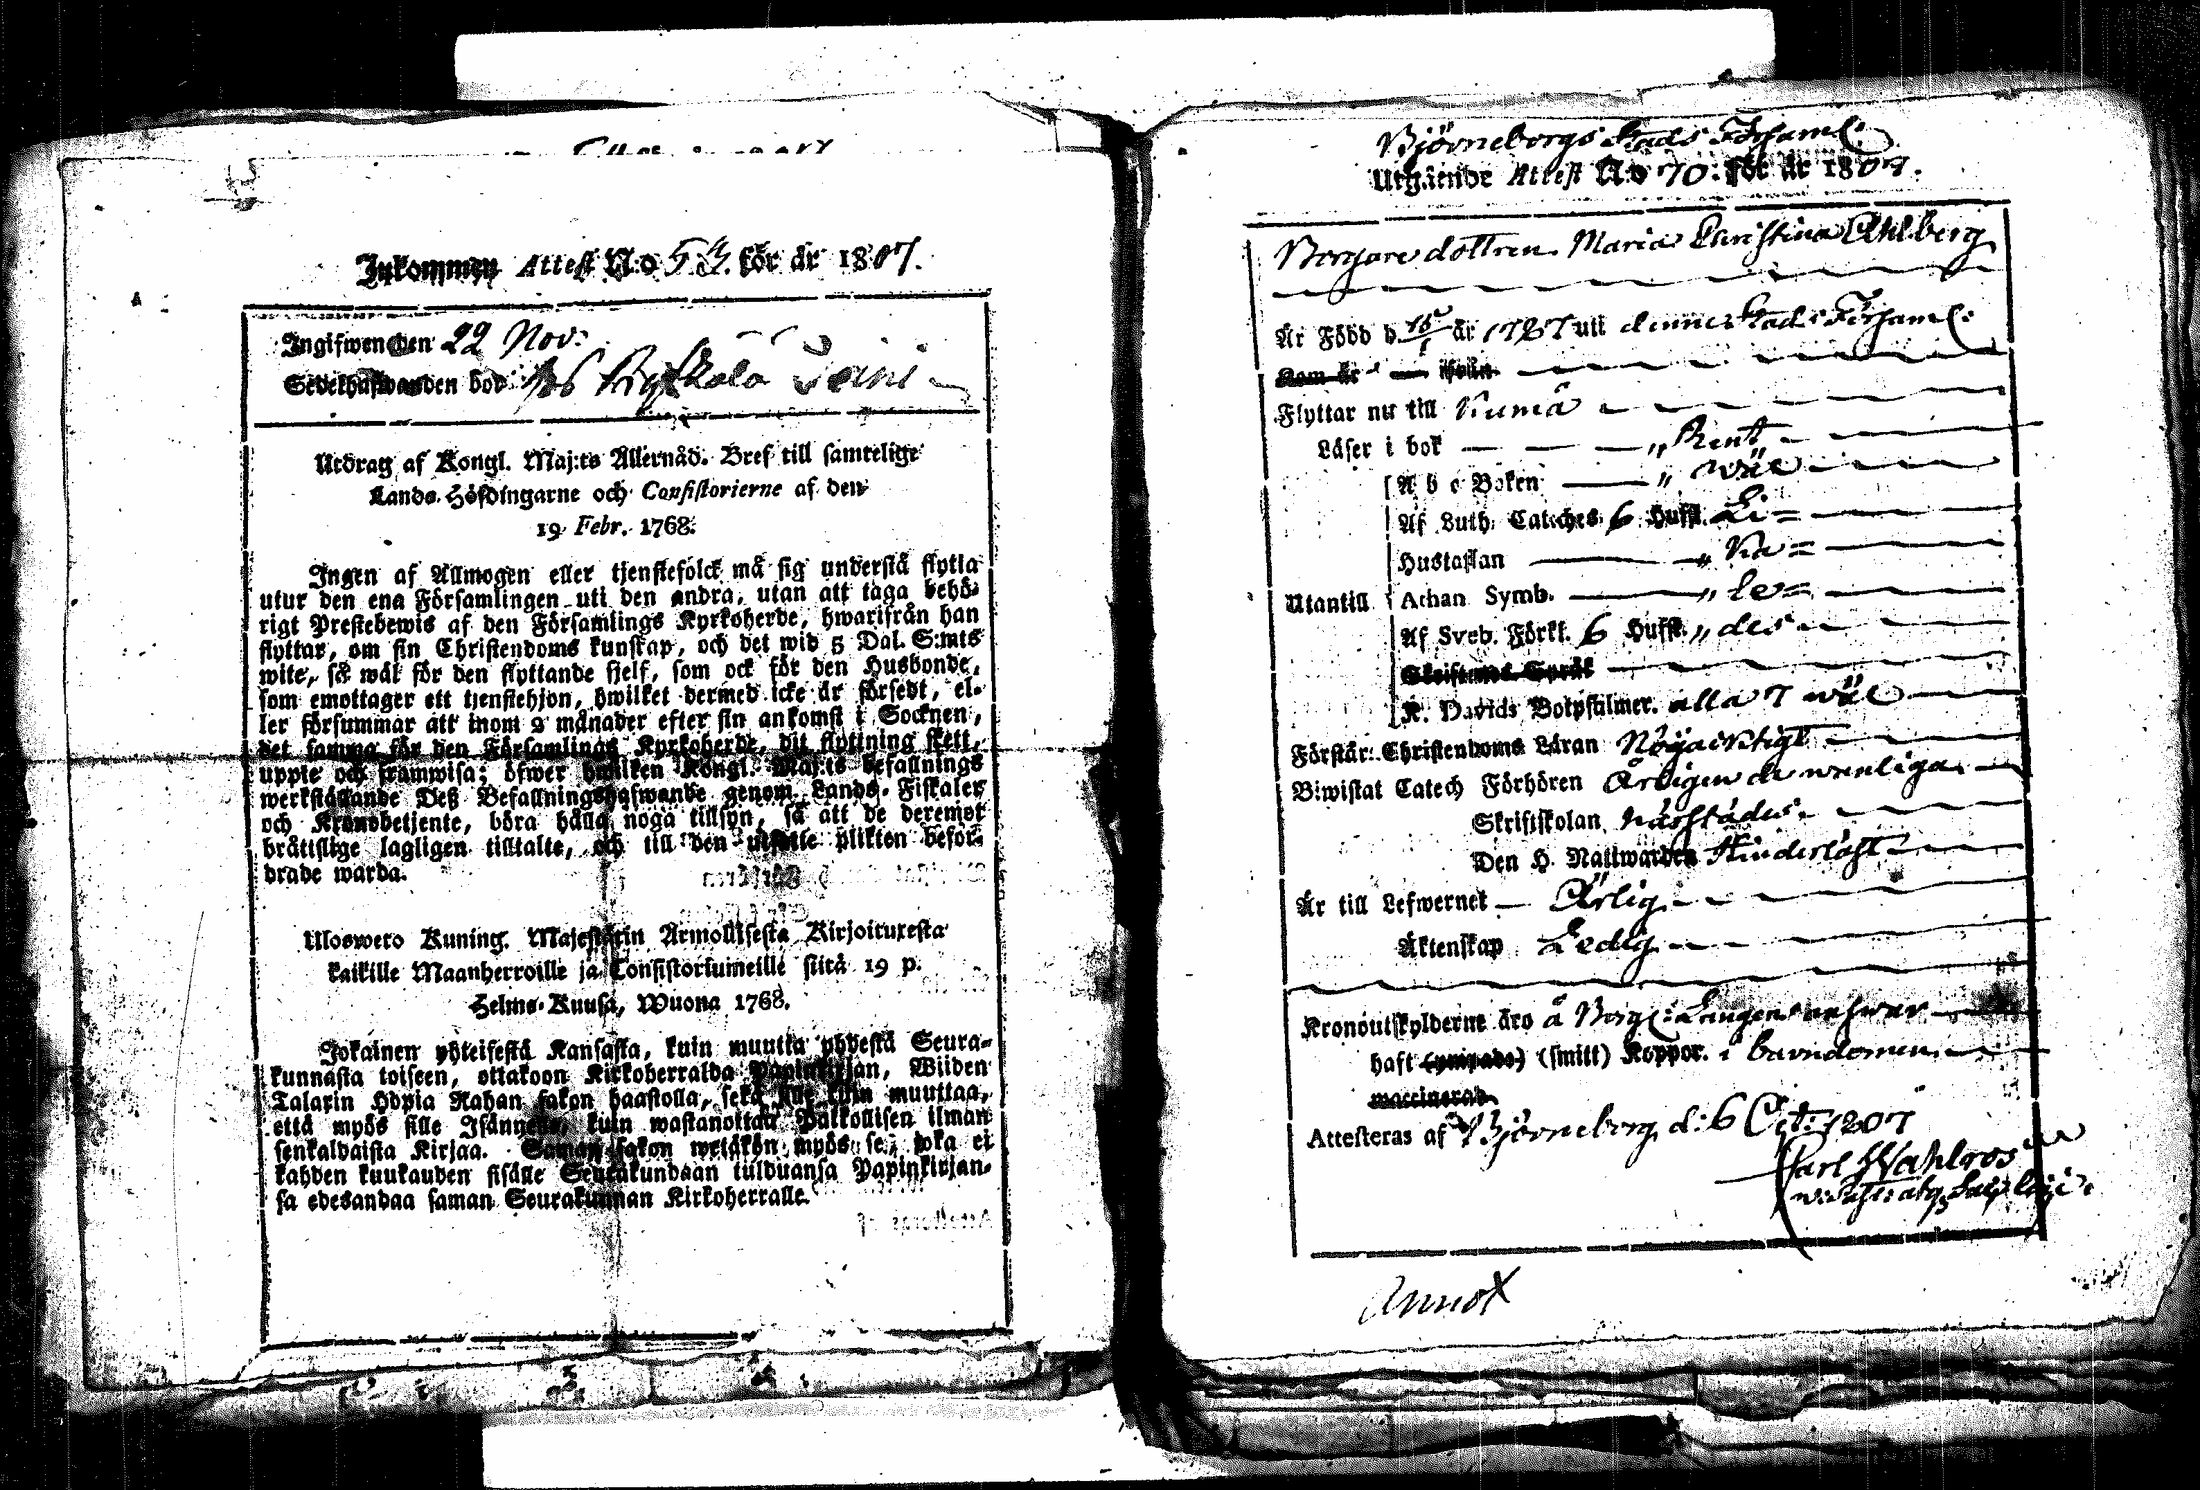 Inkommen Attest N:o 53. för år 1807.
Ingifwen den 22 Nov:
Sedelhafwanden bor
Utdrag af Kongl. Maj:ts Allernåd. Bref till samtelige
Lands-Höfdingarne och Consistorierne af den
19 Febr. 1768.
Ingen af Allmogen eller tjenstefolck må sig understå flytta
utur den ena Församlingen uti den andra, utan att taga behö-
rigt Prestebewis af den Församlings Kyrkoherde, hwarifrån han
flyttar, om sin Christendoms kunskap, och det wid 5 Dal. S:mts
wite, så wäl för den flyttande sjelf, som ock för den Husbonde,
som emottager ett tjenstehjon, hwilket dermed icke är försedt, el-
ler försummar att inom 2 månader efter sin ankomst i Socknen,
det samma för den Församlings Kyrkoherde, dit flyttning skett,
uppte och framwisa; öfwer hwilken Kongl. Maj:ts befallnings
werkställande Deß Befallningshafwande genom Lands-Fiskaler
och Kronobetjente, böra hålla noga tillsyn, så att de deremot
bråtislige lagligen tilltalte, och till den utsatte plikten befor-
drade warda.
Uloswero Kuning. Majestätin Armollisesta Kirjoituxesta
kaikille Maanherroille ja Consistoriumeille siitä 19 p.
Helme-Kuusa, Wuona 1768.
Jokainen yhteisestä Kansasta, kuin muutta yhdestä Seura-
kunnasta toiseen, ottakoon Kirkoherralda Papinkirjan, Wiiden
Talarin Hopia Rahan sakon haastolla, sekä sille kuin muuttaa,
että myös sille Isännelle, kuin wastanottaa Palkollisen ilman
senkaldaista Kirjaa. Saman sakon wetäkön myös se, joka ei
kahden kuukauden sisälle Seurakundaan tulduansa Papinkirjan-
sa edesandaa saman Seurakunnan Kirkoherralle.
Björneborgs Stads Församl:
Utgående Attest N:o 70: för år 1807.
Borgare dottren Maria Christina Ahlberg
Är Född d. år 1787 uti denne Stads Församl:
Kom år ifrån
Flyttar nu till Kumå
Läser i bok " Rent
A b c Boken " wäl
Af Luth. Cateches 6 Hufst. Li=
Hustaflan " ka=
Athan Symb. " le=
Utantill
Af Sveb. Förkl. 6 Hufst. " des
Skriftenes Språk
K. Davids Botpsalmer. alla 7 wäl
Förstår Christendoms Läran Nöjacktigt
Biwistat Catech Förhören Årligen de wanliga
Skriftskolan närstädes
Den H. Nattwarden Hinderlöst
Är till Lefwernet Ärlig
Äktenskap Ledig
Kronoutskylderne äro å Borg:
haft (ympade) (smitt) Koppor. i barndomen
waccinerad
Attesteras af Björneborg d: 6 Oct: 1807
Carl Wahlroos
Annot